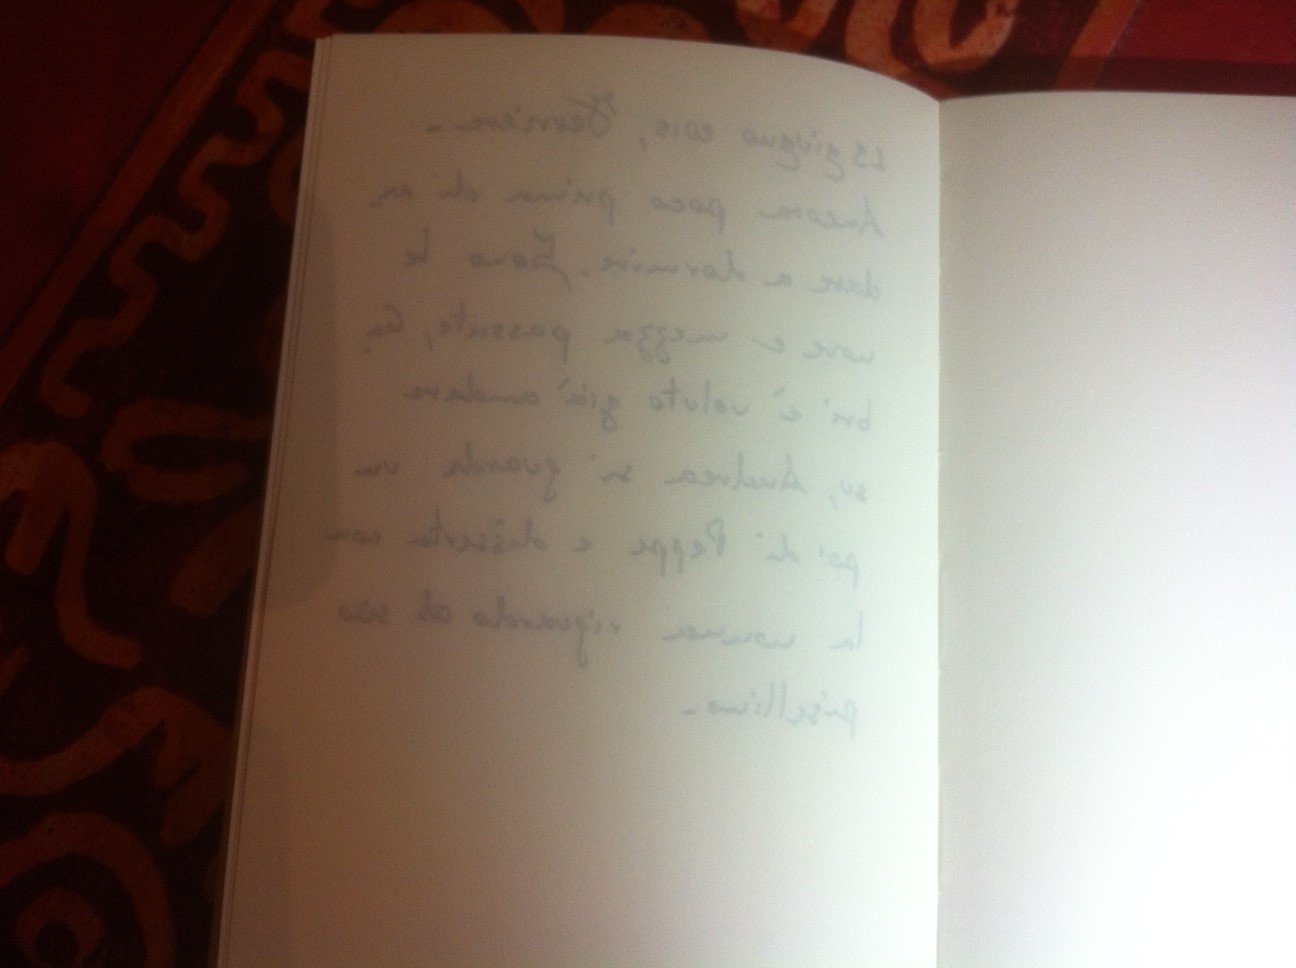 giugno 2013,
Ancora poco prima di an
dare a dormire. Sono le
nove e mezza passate, Ga
bri è voluto già andare
su, Andrea si guarda un
po' di Peppe e disserta con
la nonna riguardo al suo
pisellino.